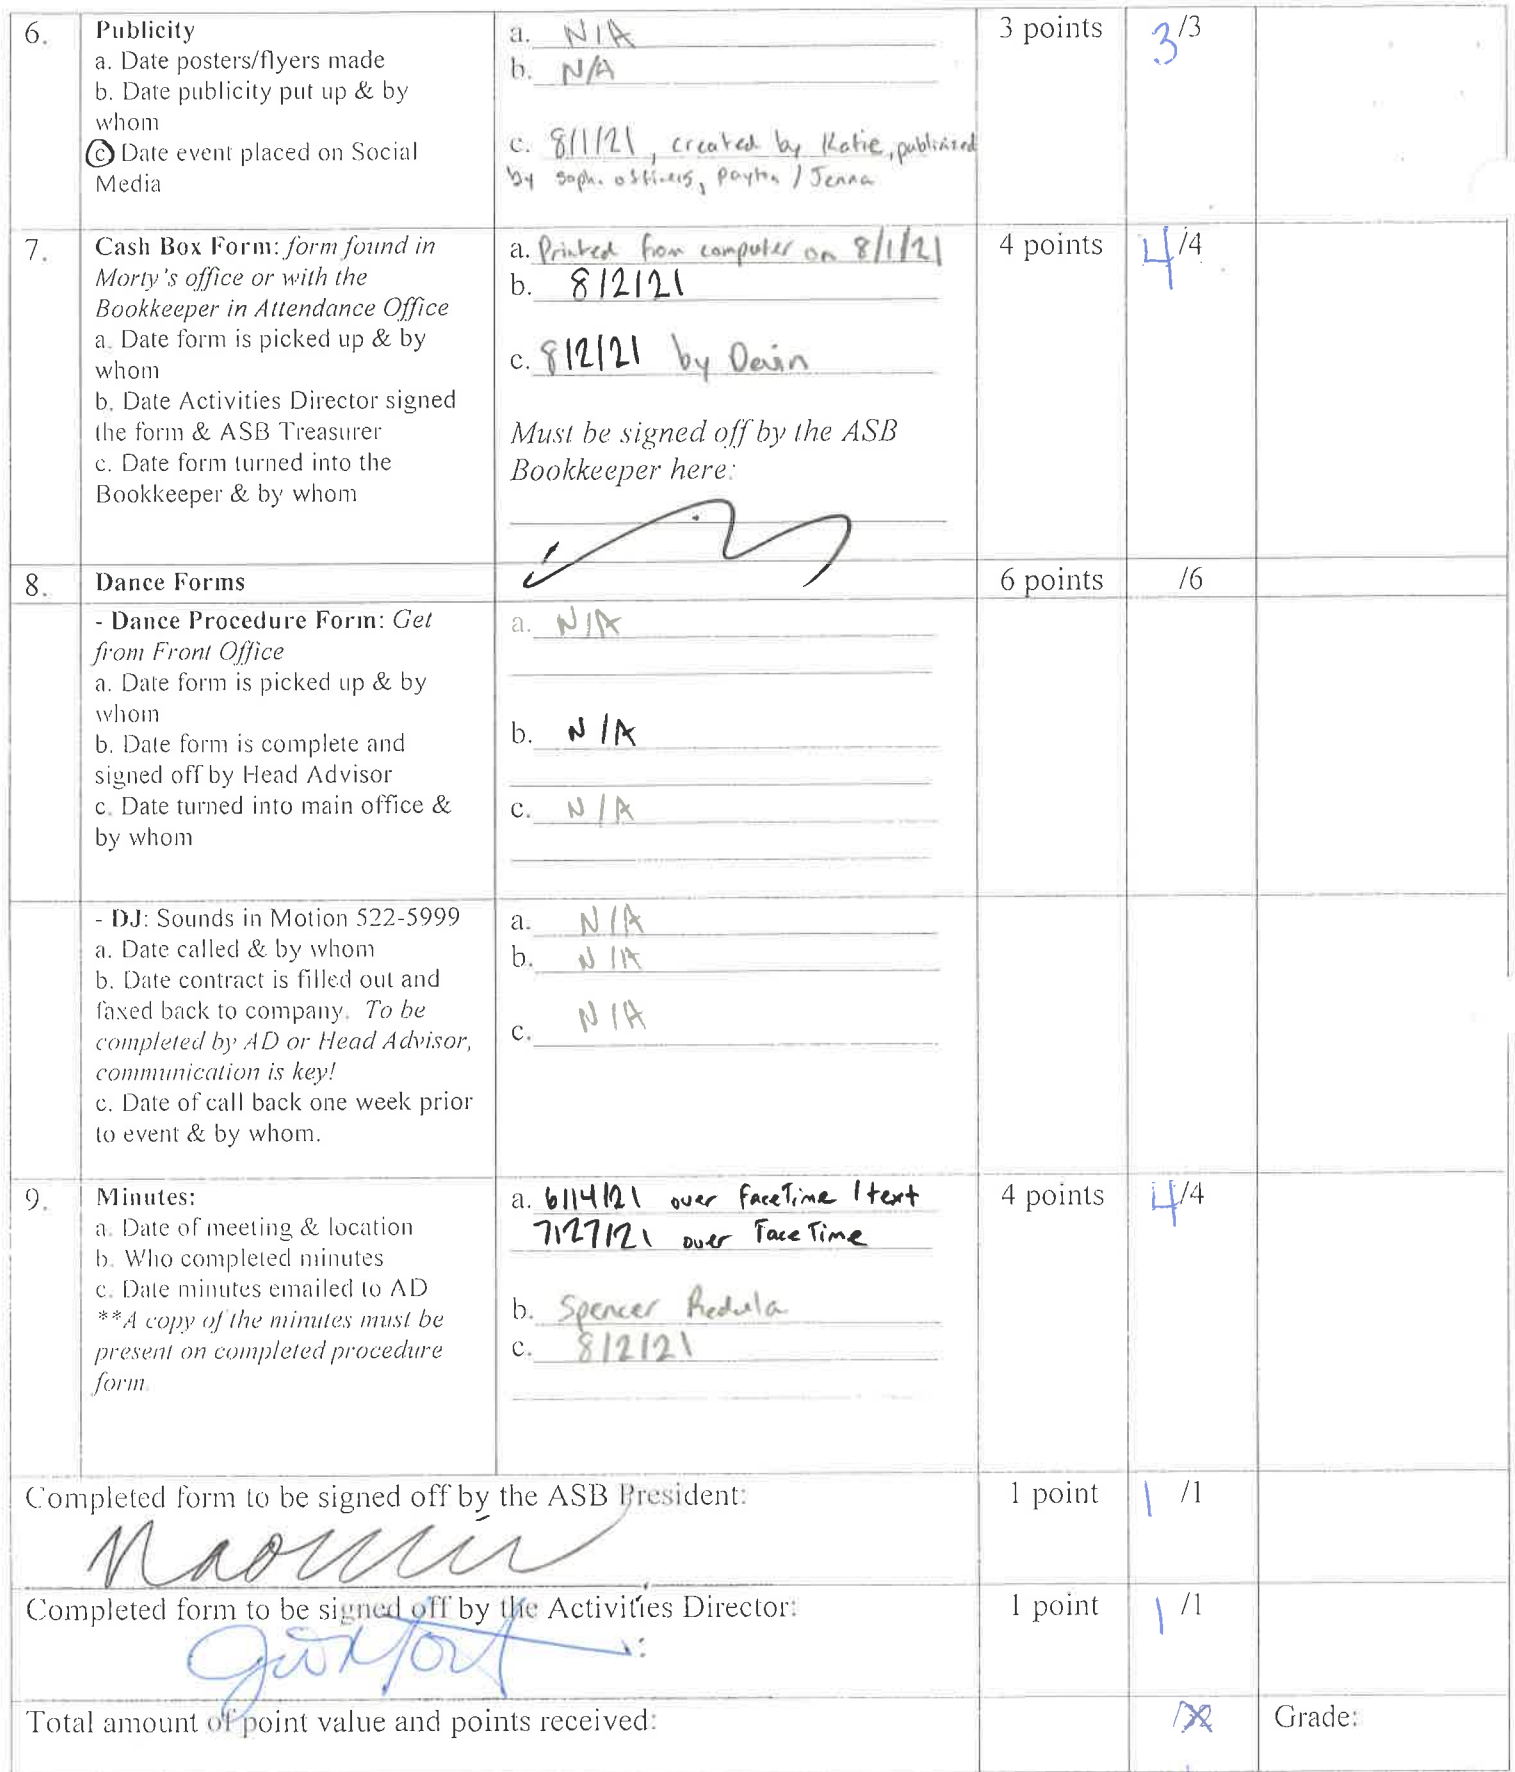 6. Publicity
a. Date posters/flyers made
b. Date publicity put up & by
whom
c Date event placed on Social
Media
a. N/A
b. N/A
c. 8/1/21, created by Katie, publicized
by soph. officers, Payton / Jenna
3 points
3/3
7. Cash Box Form: form found in
Morty's office or with the
Bookkeeper in Attendance Office
a. Date form is picked up & by
whom
b. Date Activities Director signed
the form & ASB Treasurer
c. Date form turned into the
Bookkeeper & by whom
a. Printed from computer on 8/1/21
b. 8/2/21
c. 8/2/21 by Devin
Must be signed off by the ASB
Bookkeeper here:
4 points
4/4
8. Dance Forms
6 points
/6
- Dance Procedure Form: Get
from Front Office
a. Date form is picked up & by
whom
b. Date form is complete and
signed off by Head Advisor
c. Date turned into main office &
by whom
a. N/A
b. N/A
c. N/A
- DJ: Sounds in Motion 522-5999
a. Date called & by whom
b. Date contract is filled out and
faxed back to company. To be
completed by AD or Head Advisor,
communication is key!
c. Date of call back one week prior
to event & by whom.
a. N/A
b. N/A
c. N/A
9. Minutes:
a. Date of meeting & location
b. Who completed minutes
c. Date minutes emailed to AD
**A copy of the minutes must be
present on completed procedure
form.
a. 6/14/21 over FaceTime / text
7/27/21 over FaceTime
b. Spencer
c. 8/2/21
4 points
4/4
Completed form to be signed off by the ASB President:
1 point
1/1
Naomi
Completed form to be signed off by the Activities Director:
1 point
1/1
Total amount of point value and points received:
Grade: